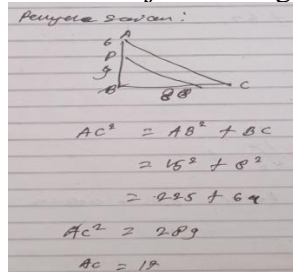 Penyelesaian:
A
6
P
9
B 8 C
AC² = AB² + BC
= 15² + 8²
= 225 + 64
AC² = 289
AC = 17